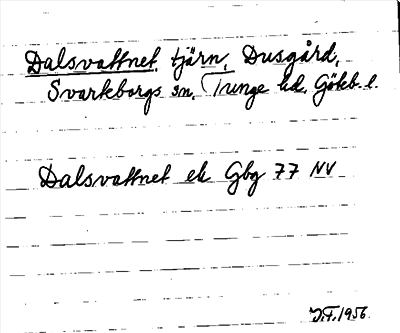 Dalsvattnet, tjärn, Dusgård,
Svarteborgs sn, Tunge hd, Göteb. l.
Dalsvattnet ek Gbg 77 NV
1956